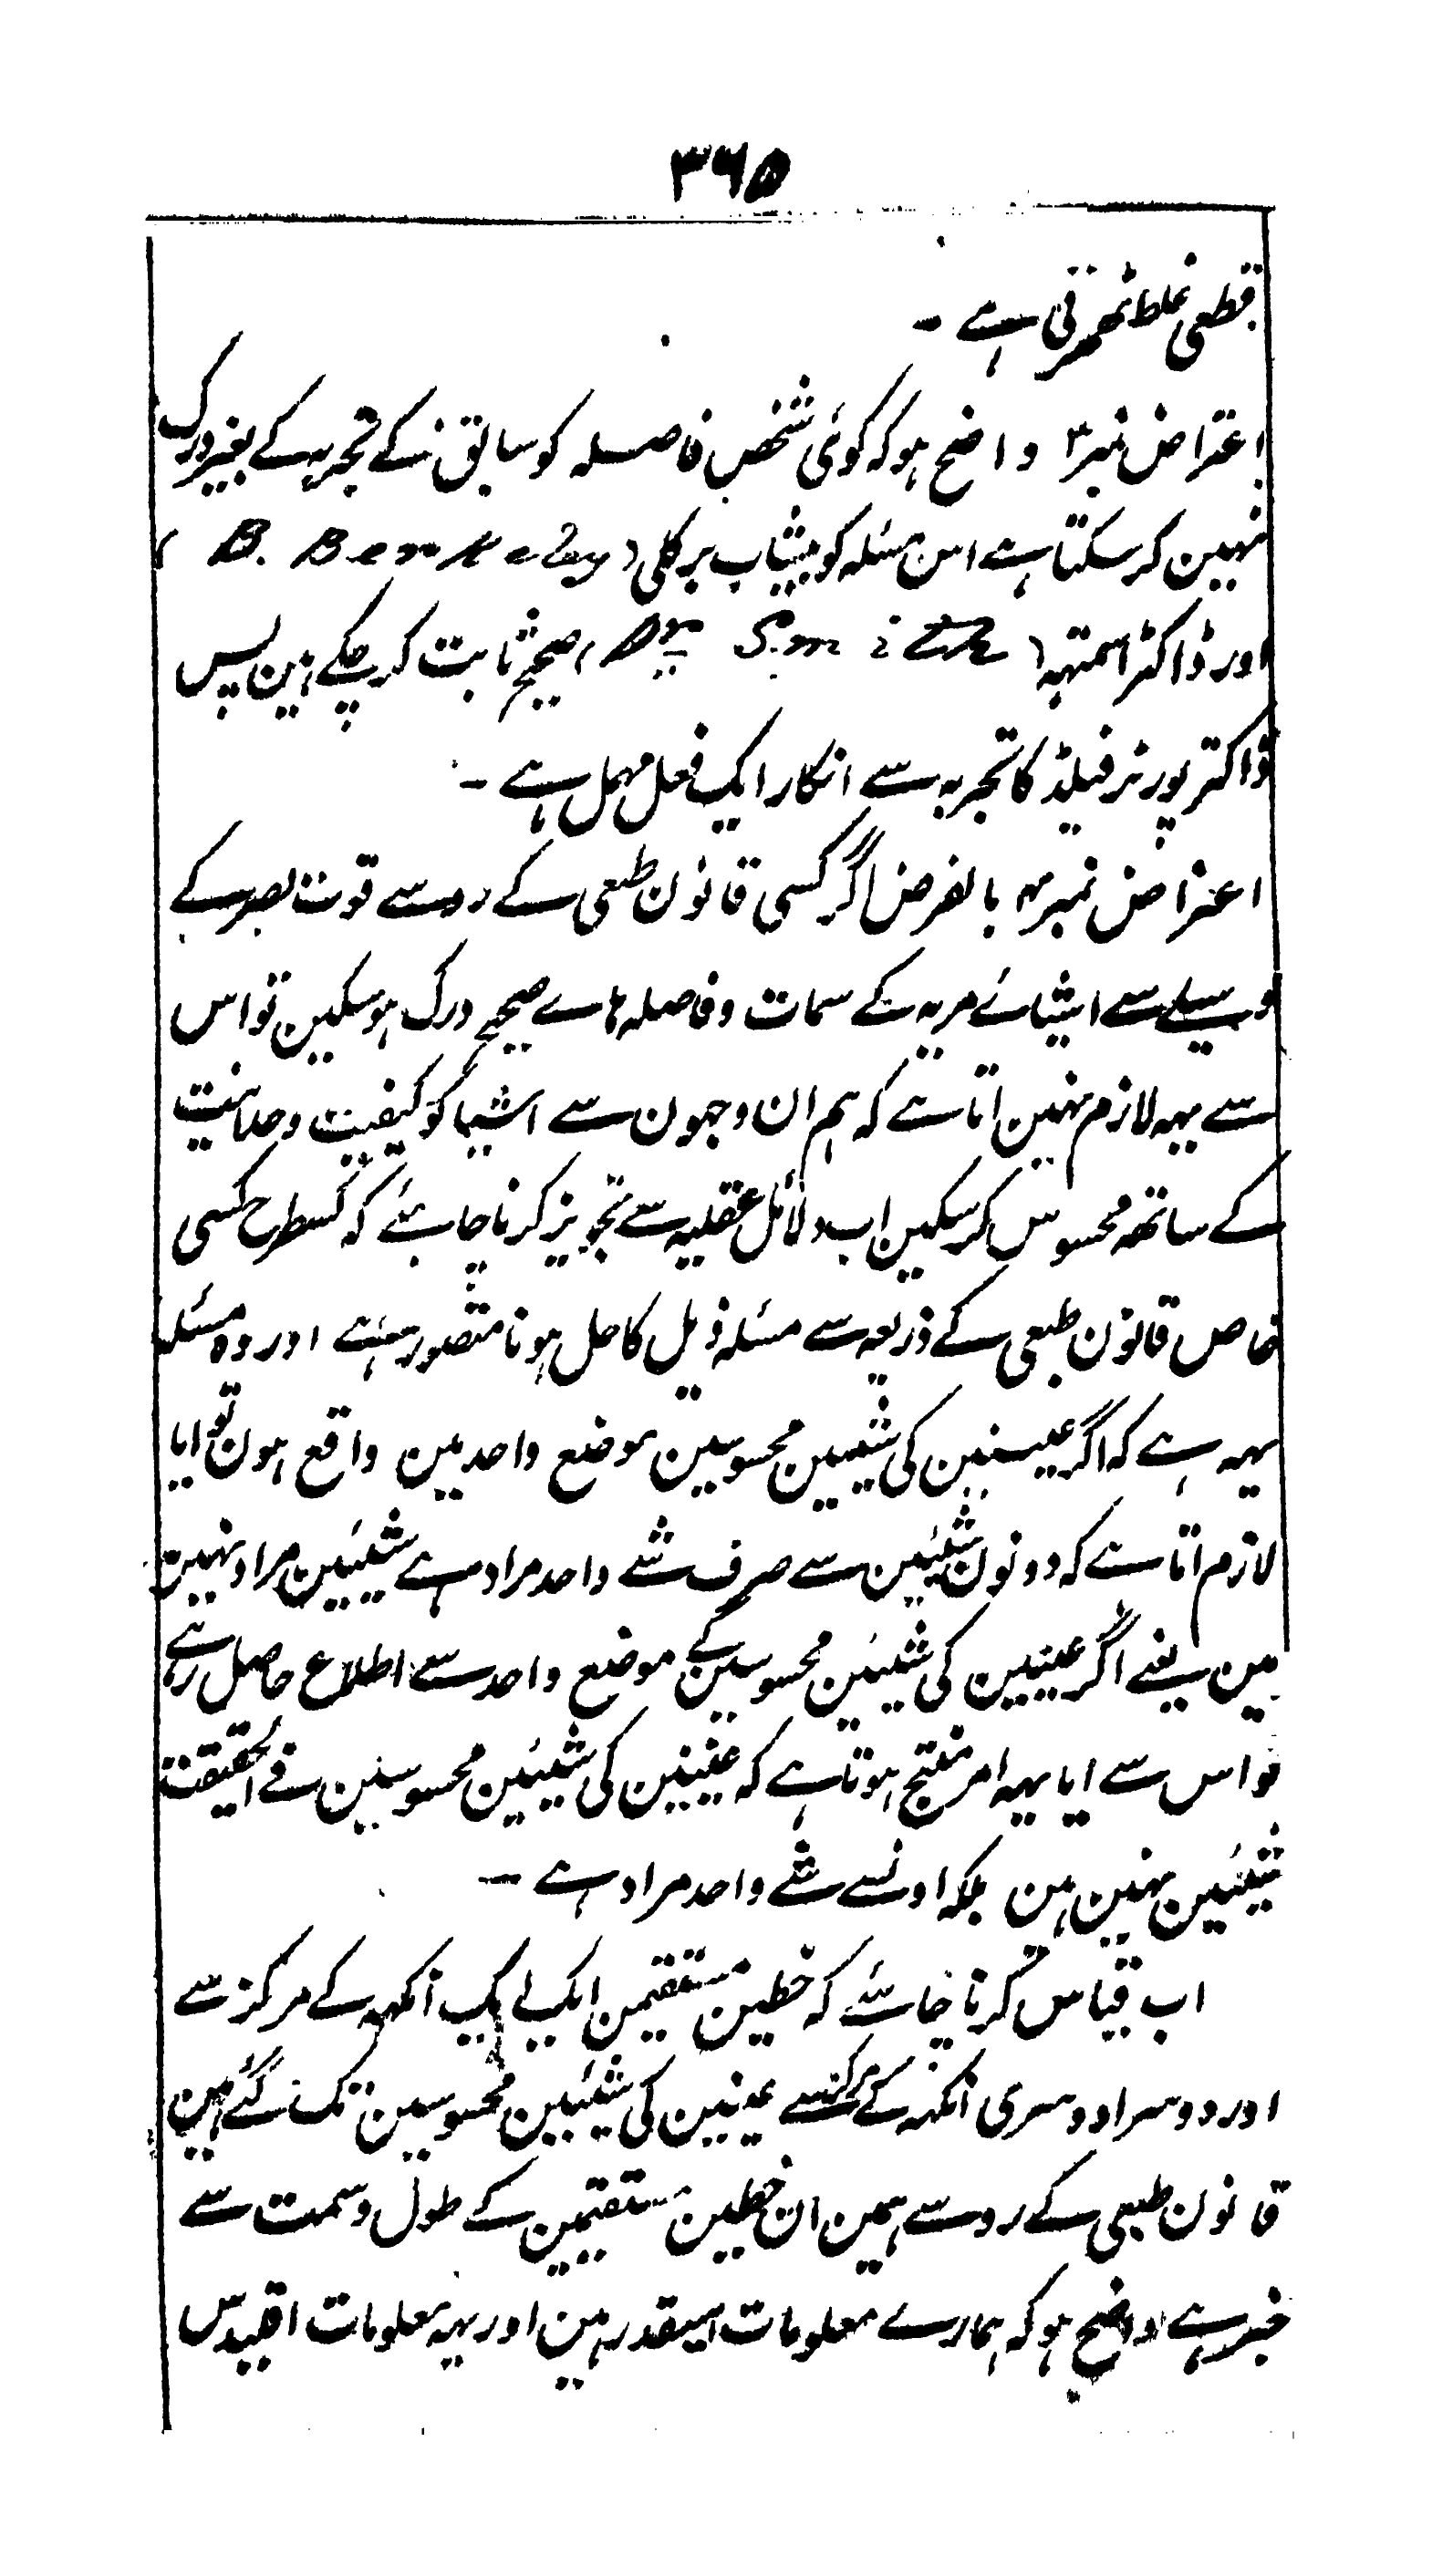 ۳۶۵
قطعی غلط ٹھہرتی ہے ۔
اعتراض نمبر۳ واضح ہو کہ کوئی شخص فاصلہ کو سابق کے تجربہ کے بغیر درک
نہین کر سکتا ہے اس مسئلہ کو بیشاپ برکلی (B. Berkeley)
اور ڈاکٹر اسمتہہ (Dr Smith) صحیح ثابت کر چکے ہین پس
ڈاکٹر پورٹرفیلڈ کا تجربہ سے انکار ایک فعل مہمل ہے ۔
اعتراض نمبر۴ بالفرض اگر کسی قانون طبعی کے رو سے قوت بصر کے
وسیلے سے اشیائے مریہ کے سمات و فاصلہ ہاے صحیح درک ہو سکین تو اس
سے یہہ لازم نہین اتا ہے کہ ہم ان وجہون سے اشیا کو کیفیت وحدانیت
کے ساتھہ محسوس کر سکین اب دلائل عقلیہ سے تجویز کرنا چاہئے کہ کسطرح کسی
خاص قانون طبعی کے ذریعہ سے مسئلہ ذیل کا حل ہونا متصور ہے اور وہ مسئلہ
یہہ ہے کہ اگر عینین کی شیئین محسوسین موضع واحد مین واقع ہون تو ایا
لازم اتا ہے کہ دونون شیئین سے صرف شے واحد مراد ہے شیئین مراد نہین
ہین یعنے اگر عینین کی شیئین محسوسین کے موضع واحد سے اطلاع حاصل رہے
تو اس سے ایا یہہ امر منتج ہوتا ہے کہ عینین کی شیئین محسوسین فے الحقیقت
شیئین نہین ہین بلکہ اونسے شے واحد مراد ہے ۔
اب قیاس کرنا چاہئے کہ خطین مستقیمین ایک ایک آنکہہ کے مرکز سے
اور دوسرا دوسری آنکہہ کے مرکز سے عینین کی شیئین محسوسین تک گئے ہین
قانون طبیعی کے رو سے ہمین ان خطین مستقیمین کے طول و سمت سے
خبر ہے واضح ہو کہ ہمارے معلومات اسیقدر ہین اور یہہ معلومات اقلیدس